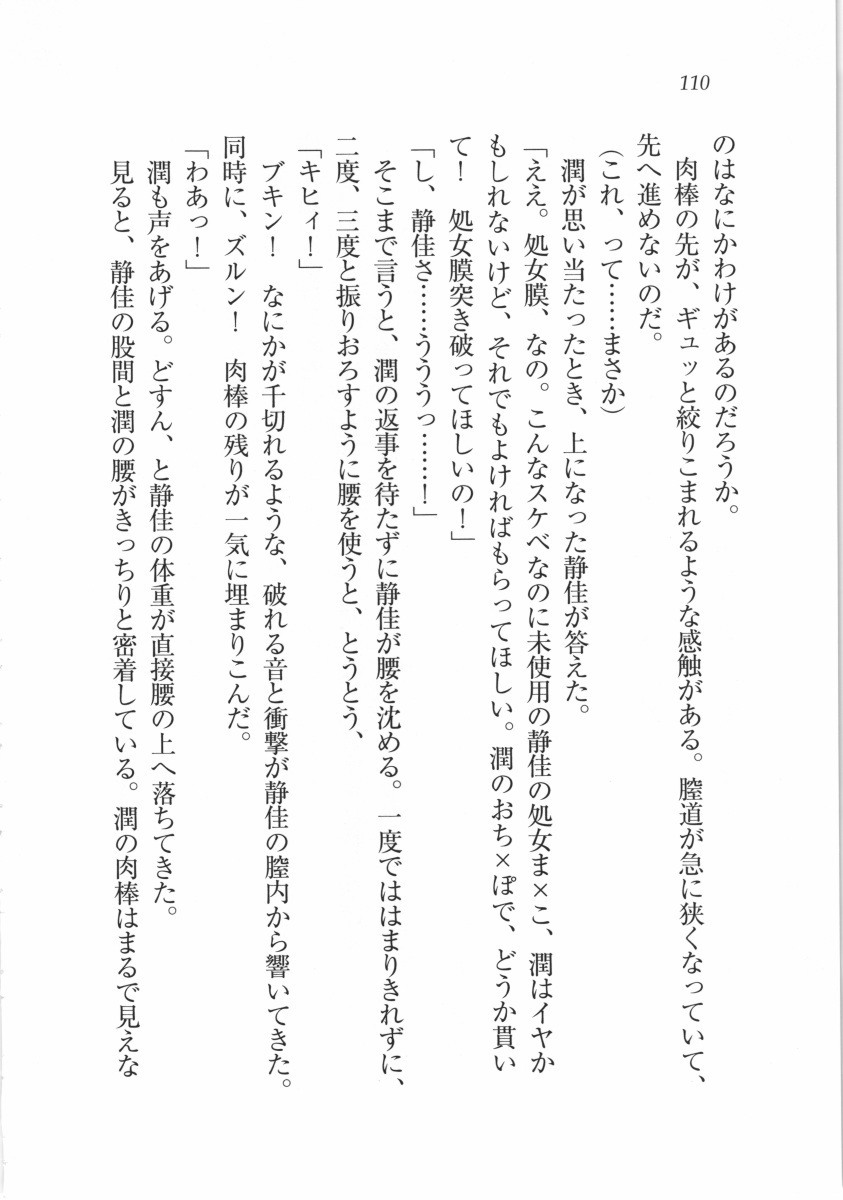 110
のはなにかわけがあるのだろうか。
肉棒の先が、ギュッと絞りこまれるような感触がある。膣道が急に狭くなっていて、
先へ進めないのだ。
（これ、って……まさか）
潤が思い当たったとき、上になった静佳が答えた。
「ええ。処女膜、なの。こんなスケベなのに未使用の静佳の処女ま×こ、潤はイヤか
もしれないけど、それでもよければもらってほしい。潤のおち×ぽで、どうか貫い
て！　処女膜突き破ってほしいの！」
「し、静佳さ……うううっ……！」
そこまで言うと、潤の返事を待たずに静佳が腰を沈める。一度でははまりきれずに、
二度、三度と振りおろすように腰を使うと、とうとう、
「キヒィ！」
ブキン！　なにかが千切れるような、破れる音と衝撃が静佳の膣内から響いてきた。
同時に、ズルン！　肉棒の残りが一気に埋まりこんだ。
「わあっ！」
潤も声をあげる。どすん、と静佳の体重が直接腰の上へ落ちてきた。
見ると、静佳の股間と潤の腰がきっちりと密着している。潤の肉棒はまるで見えな